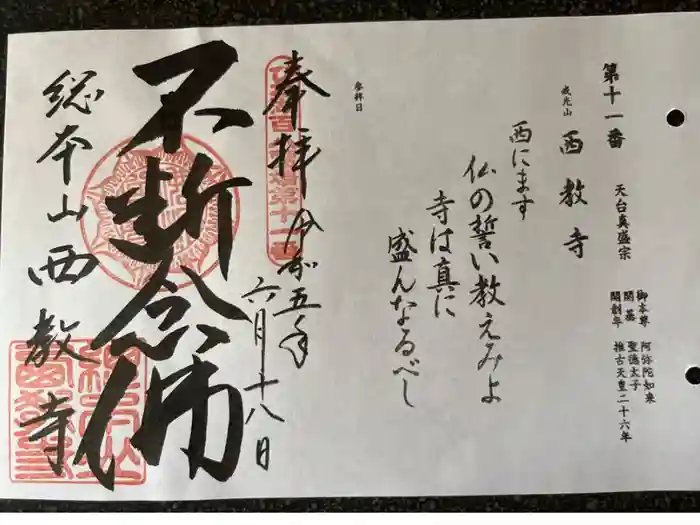 第十一番
天台真盛宗
御本尊 阿弥陀如来
開基 聖徳太子
開創年 推古天皇二十六年
戒光山 西教寺
西にます
仏の誓い教えみよ
寺は真に
盛んなるべし
参拝日
奉拝 令和五年
六月十八日
不断念佛
総本山西教寺